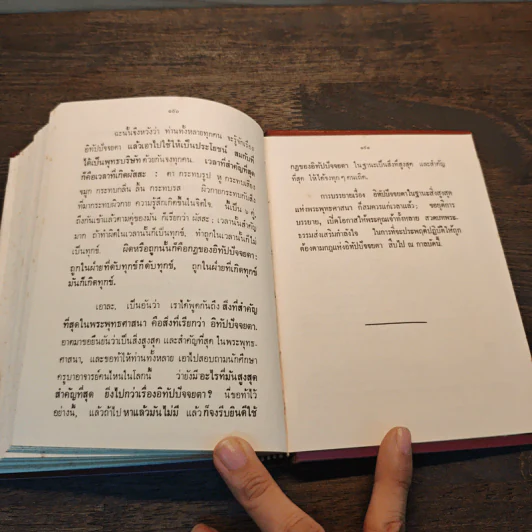 ฉะนั้นจึงหวังว่า ท่านทั้งหลายทุกคน จะรู้จักเรื่อง
อิทัปปัจจยตา แล้วเอาไปใช้ให้เป็นประโยชน์ สมกับที่
ได้เป็นพุทธบริษัท ด้วยกันจงทุกคน. เวลาที่สำคัญที่สุด
ก็คือเวลาที่เกิดผัสสะ : ตา กระทบรูป หู กระทบเสียง
จมูก กระทบกลิ่น ลิ้น กระทบรส ผิวกายกระทบกับสิ่ง
ที่มากระทบผิวกาย ความรู้สึกเกิดขึ้นในจิตใจ. นี้เป็น ๖ คู่
ถึงกันเข้าแล้วตามคู่ของมัน ก็เรียกว่า ผัสสะ ; เวลานั้นสำคัญ
มาก ถ้าทำผิดในเวลานั้นก็เป็นทุกข์, ทำถูกในเวลานั้นก็ไม่
เป็นทุกข์. ผิดหรือถูกนั้นก็คือกฎของอิทัปปัจจยตา:
ถูกในฝ่ายที่ดับทุกข์ก็ดับทุกข์, ถูกในฝ่ายที่เกิดทุกข์
มันก็เกิดทุกข์.
เอาละ, เป็นอันว่า เราได้พูดกันถึง สิ่งที่สำคัญ
ที่สุดในพระพุทธศาสนา คือสิ่งที่เรียกว่า อิทัปปัจจยตา.
อาตมาขอยืนยันว่าเป็นสิ่งสูงสุด และสำคัญที่สุด ในพระพุทธ-
ศาสนา, และขอท้าให้ท่านทั้งหลาย เอาไปสอบถามนักศึกษา
ครูบาอาจารย์คนไหนในโลกนี้ ว่ายังมีอะไรที่มันสูงสุด
สำคัญที่สุด ยิ่งไปกว่าเรื่องอิทัปปัจจยตา? นี่ขอท้าไว้
อย่างนี้, แล้วถ้าไป หาแล้วมันไม่มี แล้ว ก็จงรีบยินดีใช้
กฎของอิทัปปัจจยตา ในฐานะเป็นสิ่งที่สูงสุด และสำคัญ
ที่สุด ให้ได้จงทุก ๆ คนเถิด.
การบรรยายเรื่อง อิทัปปัจจยตาในฐานะสิ่งสูงสุด
แห่งพระพุทธศาสนา ก็สมควรแก่เวลาแล้ว; ขอยุติการ
บรรยาย, เปิดโอกาสให้พระคุณเจ้าทั้งหลาย สวดบทพระ-
ธรรมส่งเสริมกำลังใจ ในการที่จะประพฤติปฏิบัติให้ถูก
ต้องตามกฎแห่งอิทัปปัจจยตา สืบไป ณ กาลบัดนี้.